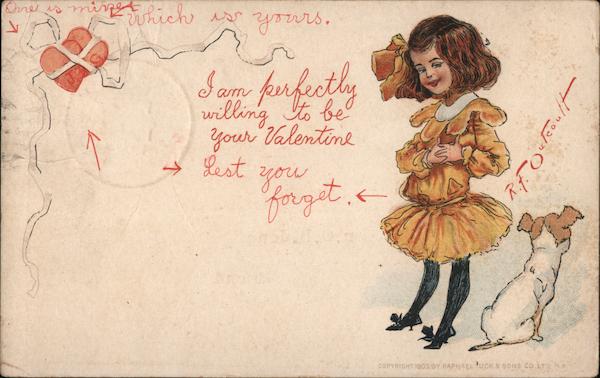 One is mine
which is yours.
I am perfectly
willing to be
your Valentine
Lest you
forget.
R.F. Outcault
COPYRIGHT 1903 BY RAPHAEL TUCK & SONS CO. LTD. N.Y.